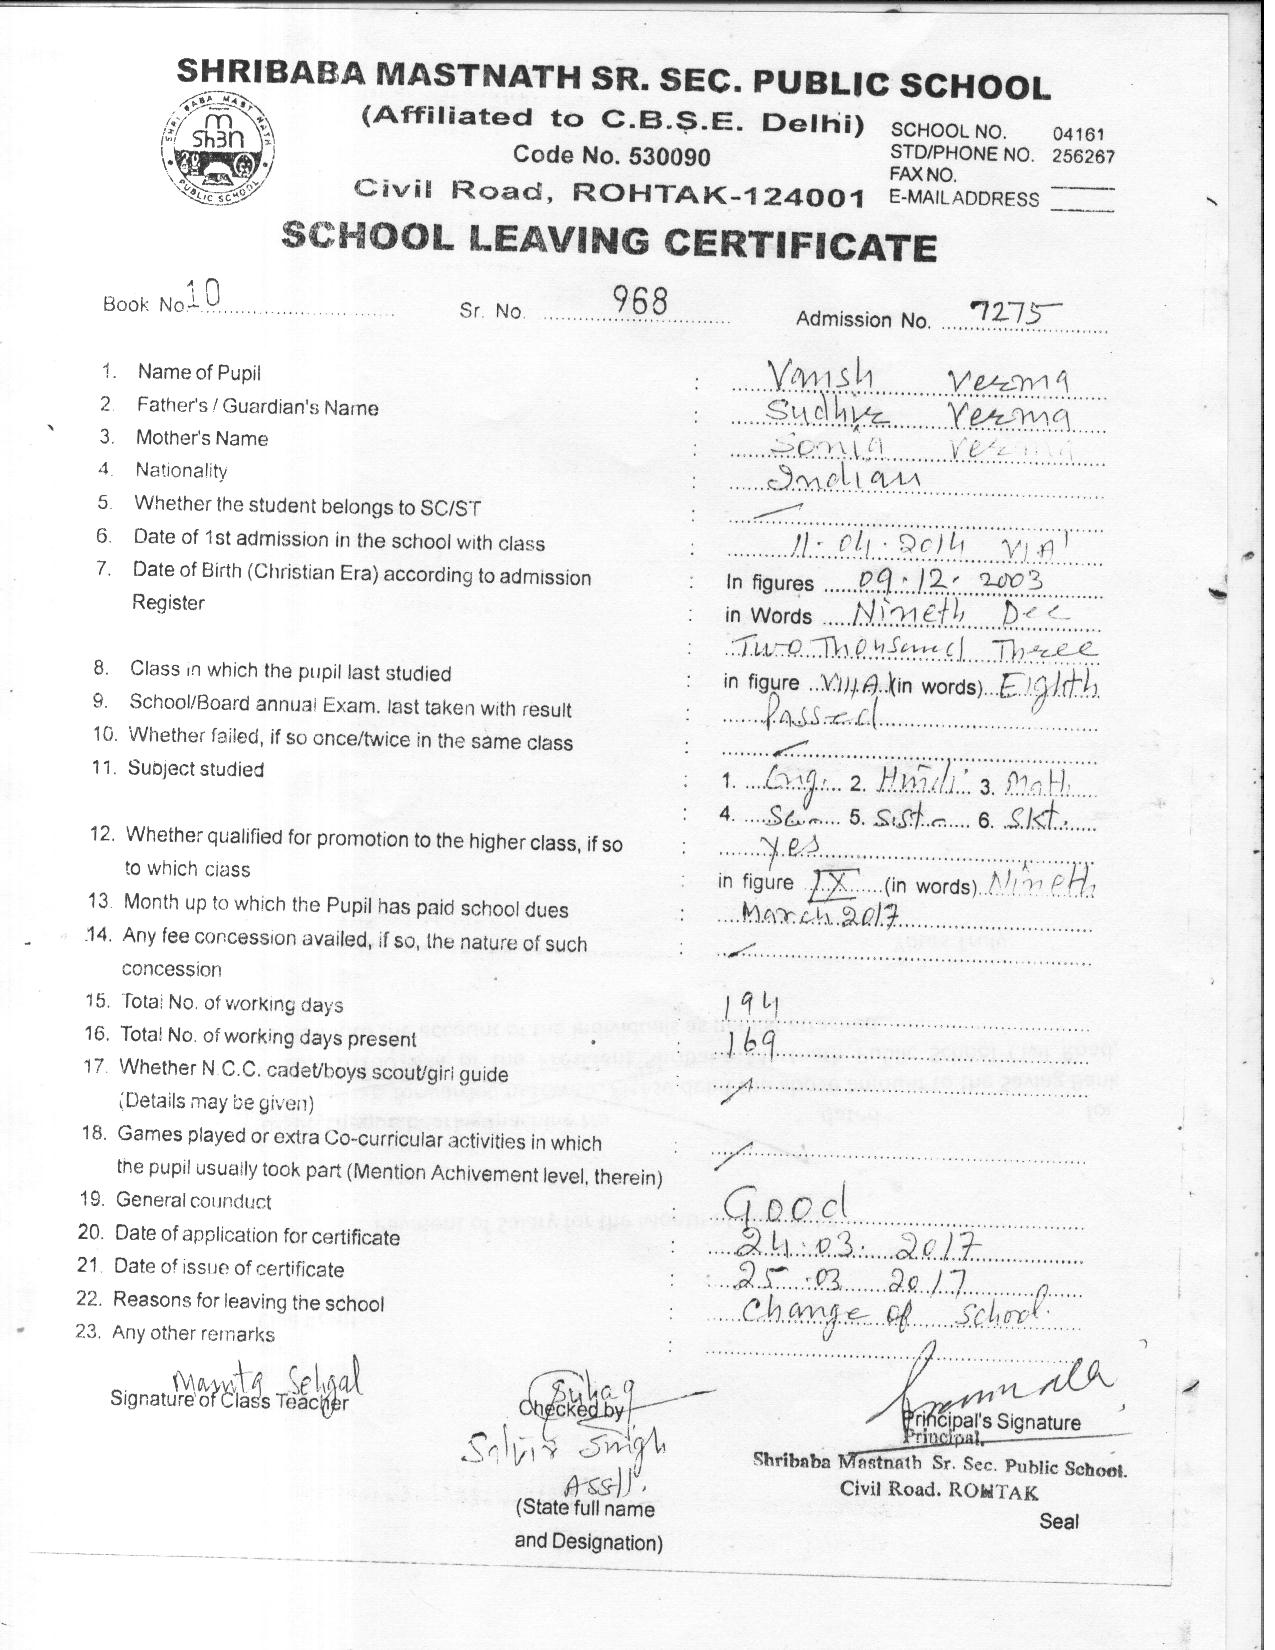 SHRIBABA MASTNATH SR. SEC. PUBLIC SCHOOL
SHRI BABA MAST NATH
PUBLIC SCHOOL
(Affiliated to C.B.S.E. Delhi)
SCHOOL NO. 04161
Code No. 530090
STD/PHONE NO. 256267
FAX NO.
Civil Road, ROHTAK-124001
E-MAIL ADDRESS
SCHOOL LEAVING CERTIFICATE
Book No. 10 Sr. No. 968 Admission No. 7275
1. Name of Pupil : Vansh Verma
2. Father's / Guardian's Name : Sudhir Verma
3. Mother's Name : Sonia Verma
4. Nationality : Indian
5. Whether the student belongs to SC/ST :
6. Date of 1st admission in the school with class : 11-04-2014 VI A
7. Date of Birth (Christian Era) according to admission : In figures 09-12-2003
Register : in Words Nineth Dec
: Two Thousand Three
8. Class in which the pupil last studied : in figure VIII A (in words) Eighth
9. School/Board annual Exam. last taken with result : Passed
10. Whether failed, if so once/twice in the same class :
11. Subject studied : 1. Eng. 2. Hindi 3. Math
: 4. 5. S.St. 6. Skt.
12. Whether qualified for promotion to the higher class, if so : Yes
to which class : in figure IX (in words) Nineth
13. Month up to which the Pupil has paid school dues : March 2017
14. Any fee concession availed, if so, the nature of such :
concession
15. Total No. of working days 194
16. Total No. of working days present 169
17. Whether N.C.C. cadet/boys scout/girl guide :
(Details may be given)
18. Games played or extra Co-curricular activities in which :
the pupil usually took part (Mention Achivement level, therein)
19. General counduct : Good
20. Date of application for certificate : 24-03-2017
21. Date of issue of certificate : 25-03 2017
22. Reasons for leaving the school : Change of school.
23. Any other remarks :
Mamta Sehgal
Signature of Class Teacher
Checked by
Principal's Signature
Principal,
Singh
Shribaba Mastnath Sr. Sec. Public School.
Civil Road. ROHTAK
(State full name
Seal
and Designation)